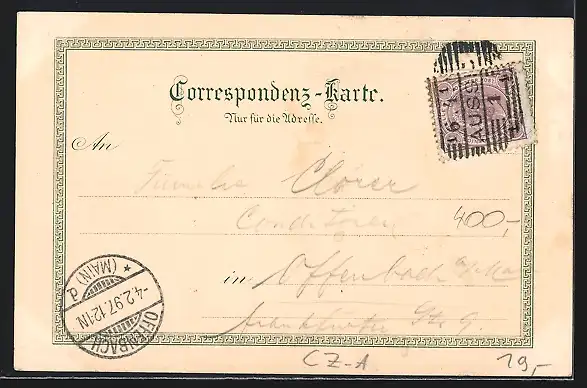 Correspondenz-Karte.
Nur für die Adresse.
An
Familie Clorer
Conditorei
400,-
in Offenbach a/Main
Frankfurter Str 9.
AUSS
1
OFFENBACH
* (MAIN) *
-4.2.97.12-1N
CZ-A
19,-